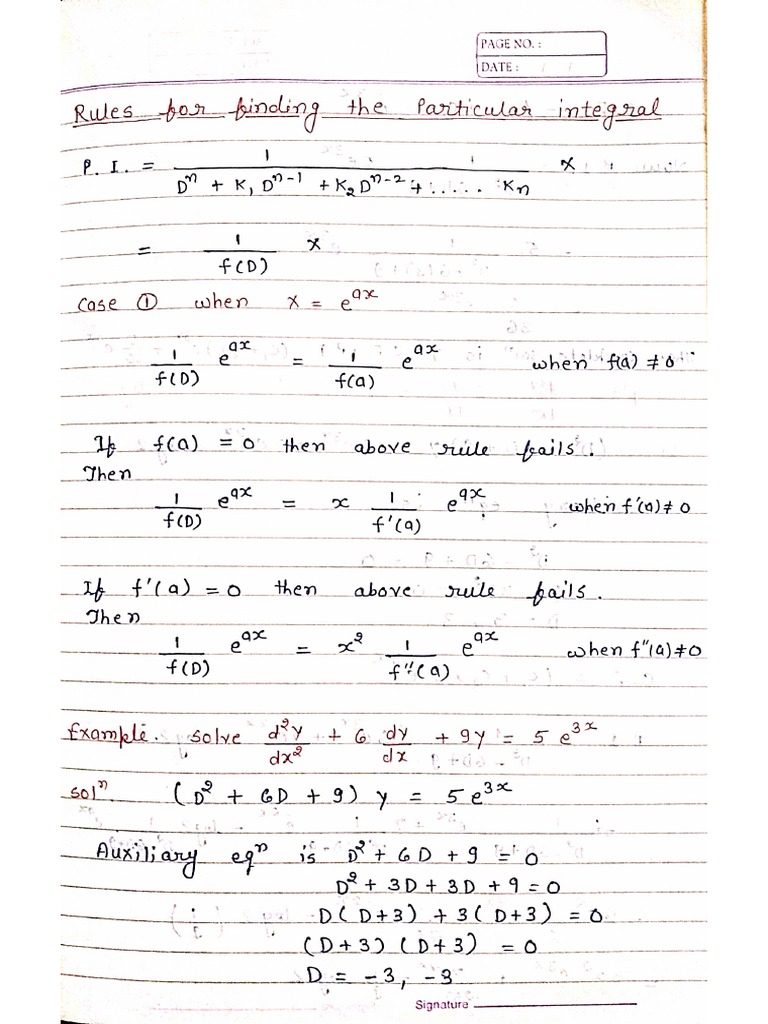 PAGE NO. :
DATE : / /
Rules for finding the Particular integral
P. I. = 1 / (Dⁿ + K₁ Dⁿ⁻¹ + K₂ Dⁿ⁻² + ..... Kₙ) X
= 1 / f(D) X
Case ① when X = e^{ax}
1 / f(D) e^{ax} = 1 / f(a) e^{ax} when f(a) ≠ 0
If f(a) = 0 then above rule fails.
Then
1 / f(D) e^{ax} = x 1 / f'(a) e^{ax} when f'(a) ≠ 0
If f'(a) = 0 then above rule fails.
Then
1 / f(D) e^{ax} = x² 1 / f''(a) e^{ax} when f''(a) ≠ 0
Example. Solve d²y/dx² + 6 dy/dx + 9y = 5 e^{3x}
Solⁿ. (D² + 6D + 9) y = 5 e^{3x}
Auxiliary eqⁿ is D² + 6D + 9 = 0
D² + 3D + 3D + 9 = 0
D(D+3) + 3(D+3) = 0
(D+3) (D+3) = 0
D = -3, -3
Signature